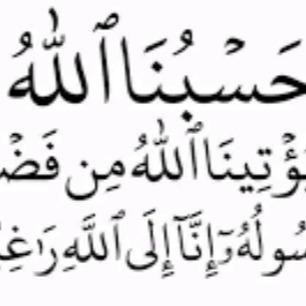 حَسْبُنَا ٱللَّهُ
ؤْتِينَا ٱللَّهُ مِن فَضْ
سُولُهُۥٓ إِنَّآ إِلَى ٱللَّهِ رَٰغِ